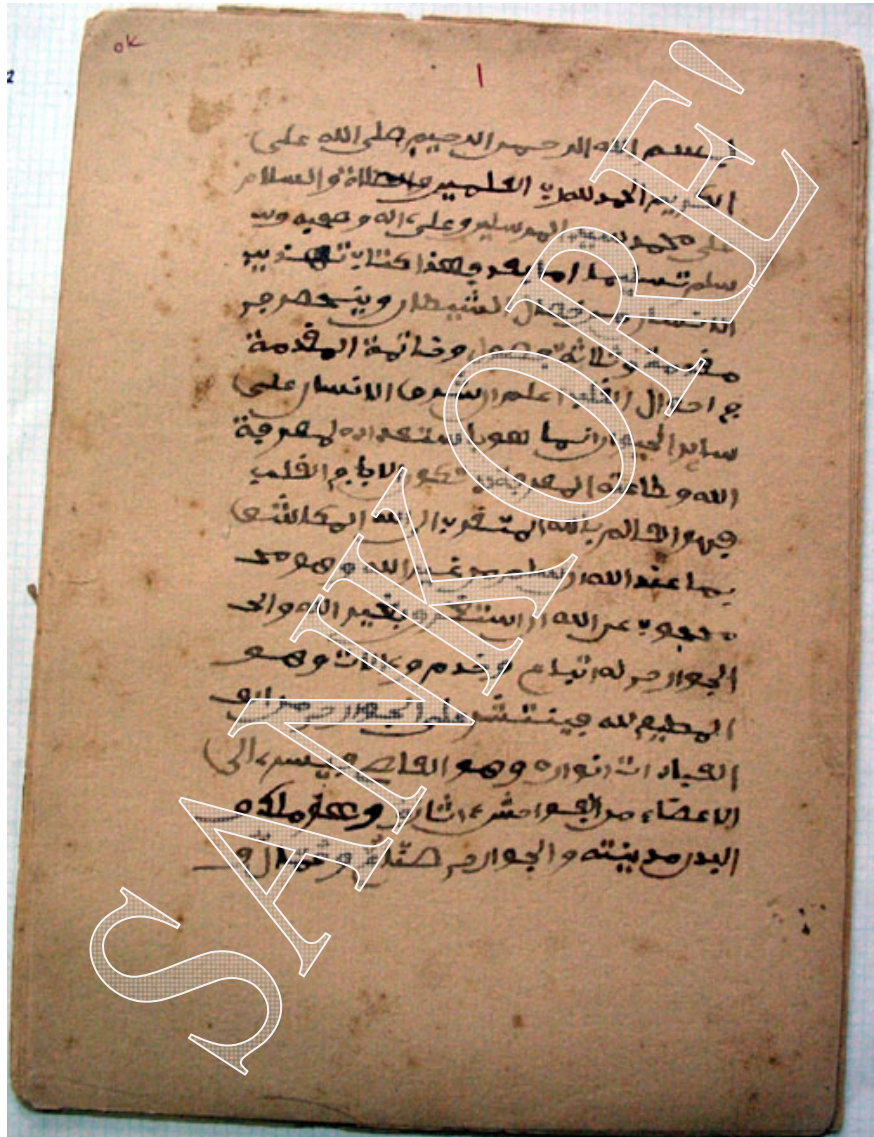 ok
١
2
بسم الله الرحمن الرحيم صلى الله على
الكريم الحمد لله رب العلمين والصلاة والسلام
على محمد سيد المرسلين وعلى ءاله وصحبه وسـ
سلم تسليما اما بعد فهذا كتاب تهذيب
الانسان من خصال الشيطان وينحصر في
مقدمة وثلاثة فصول وخاتمة المقدمة
في احوال القلب اعلم ان شرف الانسان على
ساير الحيوان انما هو باستعداده لمعرفة
الله وطاعته المعرفة لا تكون الا بالقلب
فهو العالم بالله المتقرب الى الله المكاشف
بما عند الله ان سلم من غير الله وهو محـ
محجوب عن الله ان استغرق بغير الله والحـ
الجوارح له اتباع وخدم وءالات وهو
المطيع لله فينتشر على الجوارح من
العبادات انواره وهو العاصي فيسري الى
الاعضاء من الفواحش ءاثاره وهو ملك و
البدن مدينته والجوارح
SANKORE'